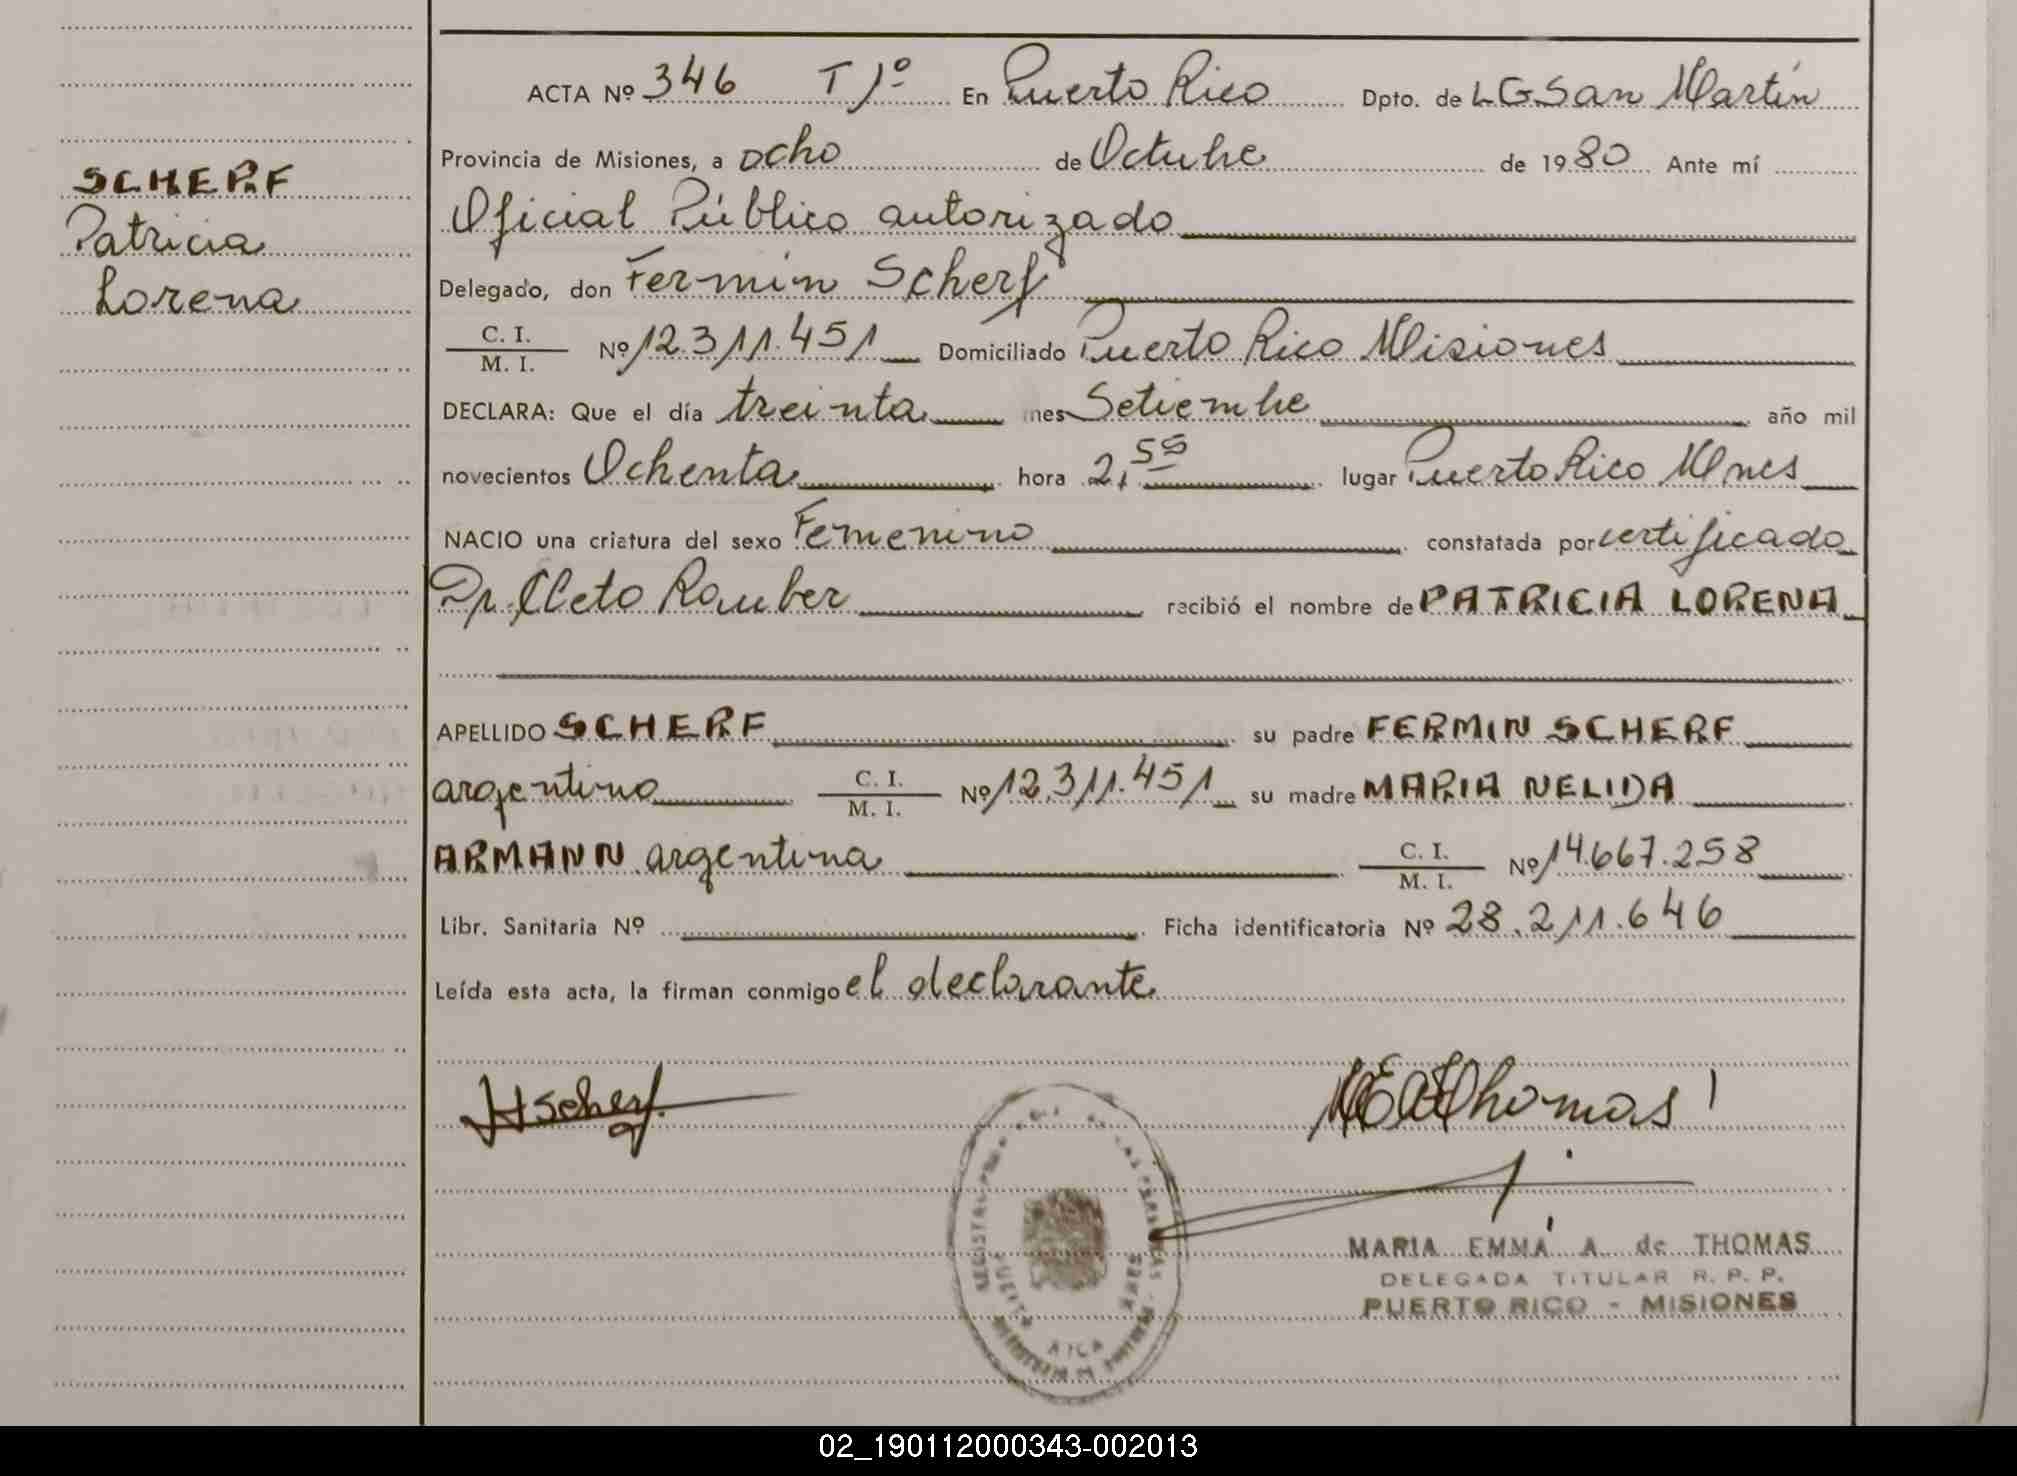 SCHERF
Patricia
Lorena
ACTA Nº 346 T 1º En Puerto Rico Dpto. de L G San Martín
Provincia de Misiones, a ocho de Octubre de 1980 Ante mí
Oficial Público autorizado
Delegado, don Fermin Scherf
C. I.
M. I. Nº 12.311.451 Domiciliado Puerto Rico Misiones
DECLARA: Que el día treinta mes Setiembre año mil
novecientos Ochenta hora 2,55 lugar Puerto Rico Mnes
NACIO una criatura del sexo Femenino constatada por certificado
Dr. Cleto Rauber recibió el nombre de PATRICIA LORENA
APELLIDO SCHERF su padre FERMIN SCHERF
argentino C. I. M. I. Nº 12.311.451 su madre MARIA NELIDA
ARMANN argentina C. I. M. I. Nº 14.667.258
Libr. Sanitaria Nº Ficha identificatoria Nº 28.211.646
Leída esta acta, la firman conmigo el declarante
Scherf
Thomas
MARIA EMMA A. de THOMAS
DELEGADA TITULAR R. P. P.
PUERTO RICO - MISIONES
02_190112000343-002013